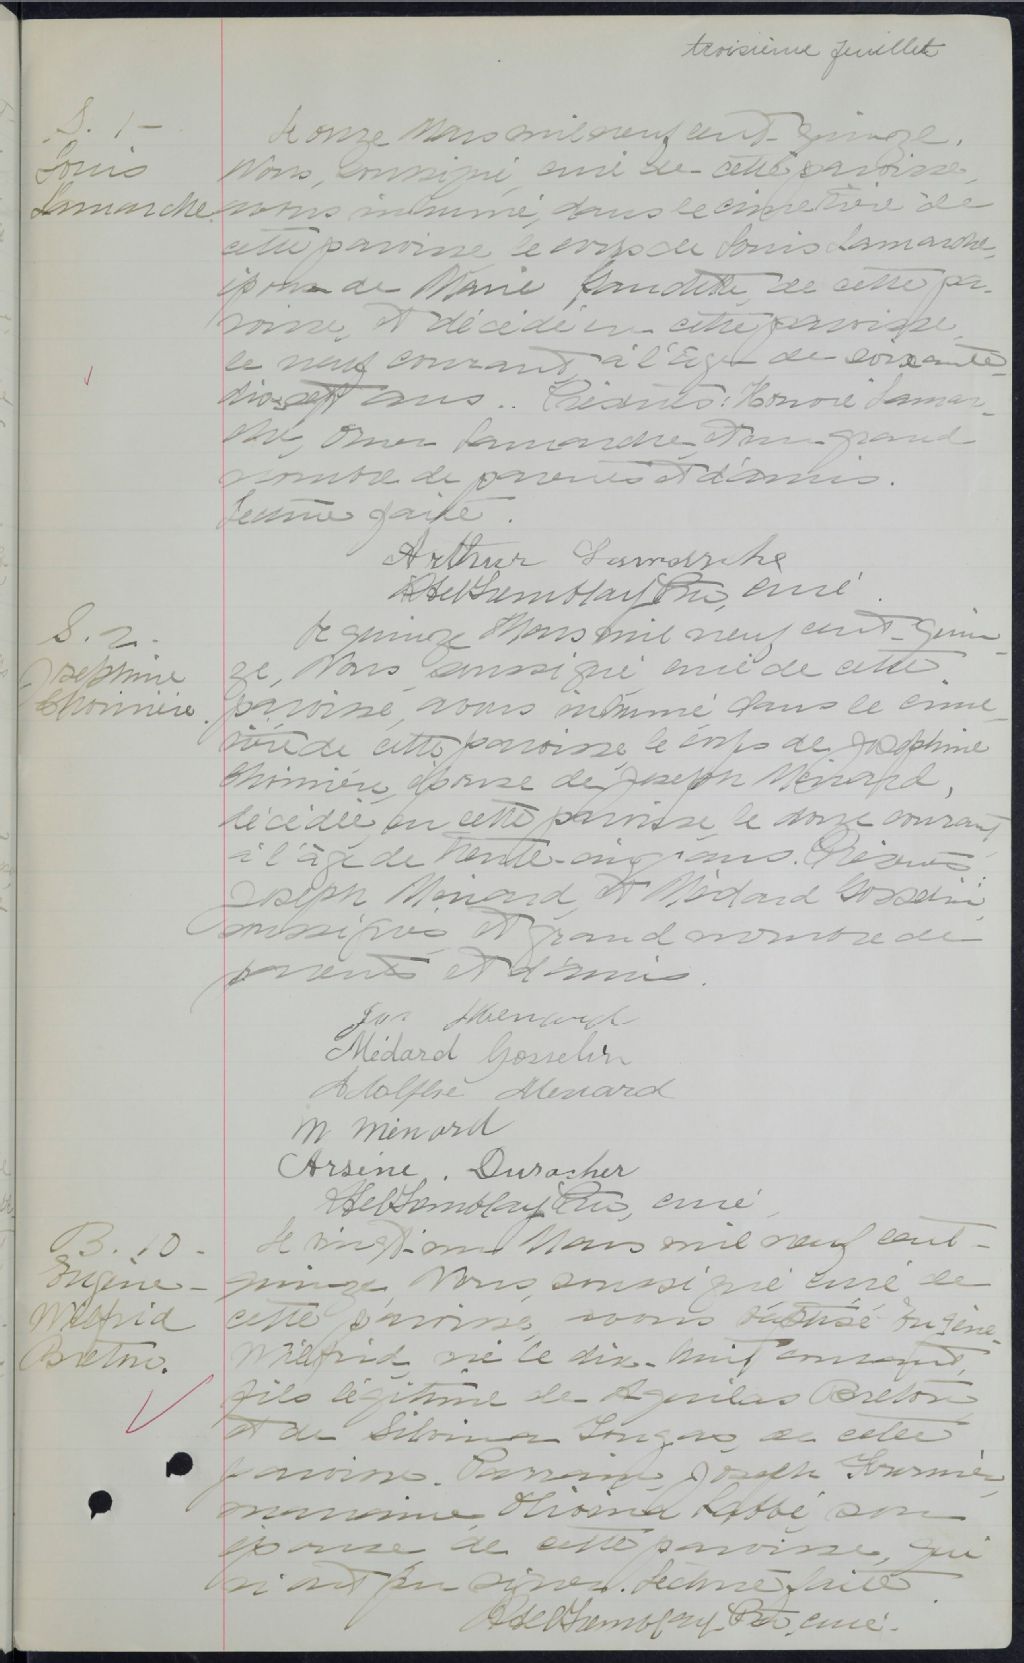 troisième feuillet
S. 1 -
Louis
Lamarche
Le onze Mars mil neuf cent-quinze,
Nous, soussigné, curé de cette paroisse,
avons inhumé, dans le cimetière de
cette paroisse, le corps de Louis Lamarche,
époux de Marie Gaudette, de cette pa-
roisse, et décédé en cette paroisse,
le neuf courant, à l'âge de soixante-
dix-sept ans.. Présents: Honoré Lamar-
che, Omer Lamarche, et un grand
nombre de parents et d'amis.
Lecture faite.
Arthur Lamarche
Ptre, curé.
S. 2 -
Josephine
Phoinière.
Le quinze Mars mil neuf cent-quin-
ze, Nous soussigné curé de cette
paroisse, avons inhumé, dans le cime-
tière de cette paroisse, le corps de Josephine
épouse de Joseph Ménard,
décédée en cette paroisse, le douze courant,
à l'âge de trente-cinq ans. Présents:
Joseph Ménard, et Médard Gosselin,
soussignés, et grand nombre de
parents et d'amis.
Jos Menard
Médard Gosselin
Adolphe Menard
N Ménard
Arsène. Durocher
Ptre, curé
B. 10 -
Eugène-
Wilfrid
Breton.
Le vingt-un Mars mil neuf cent-
quinze, Nous, soussigné curé de
cette paroisse, avons baptisé Eugène-
Wilfrid, né le dix-huit courant,
fils légitime de Aquilas Breton,
et de Longas, de cette
paroisse. Parrain, Joseph Fournier,
marraine, Labbé, son
épouse, de cette paroisse, qui
n'ont pu signer. Lecture faite
Ptre, curé.